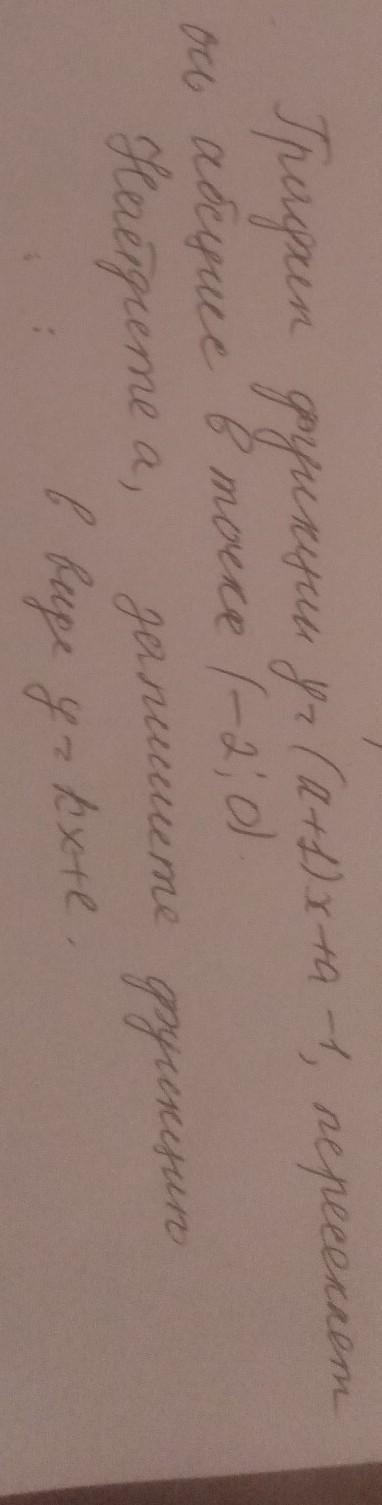 График функции y = (a+1)x+a-1, пересекает
ось абсцисс в точке (-2; 0)
Найдите a, запишите функцию
в виде y = kx+l.